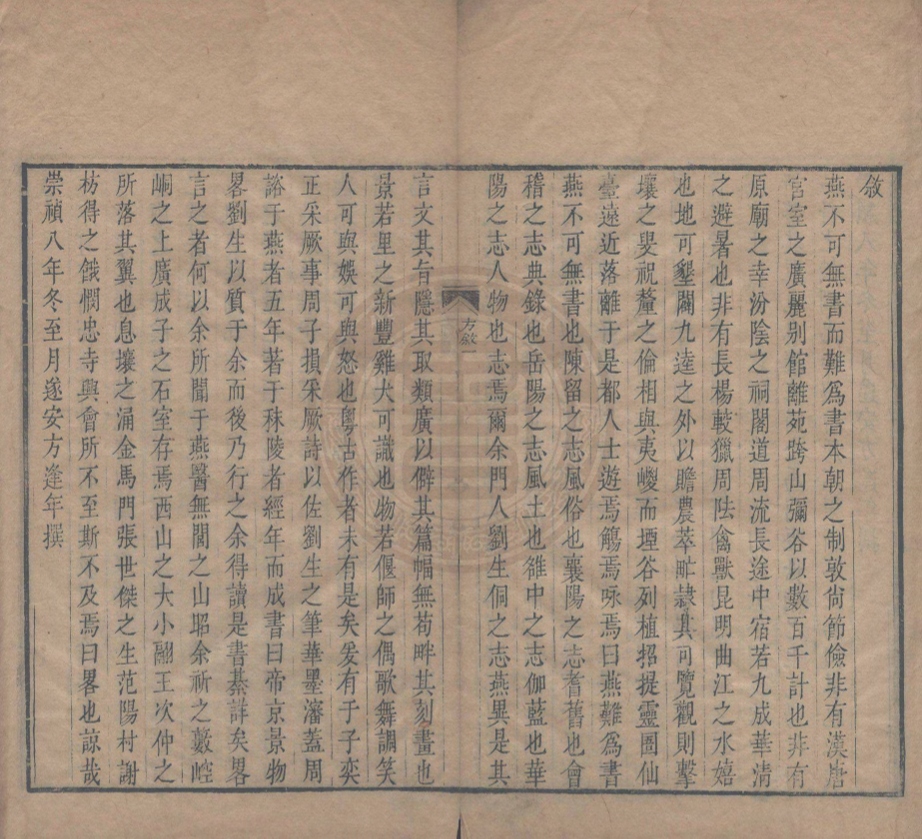 敘
燕不可無書而難爲書本朝之制敦尙節儉非有漢唐
宮室之廣麗别館離苑跨山彌谷以數百千計也非有
原廟之幸汾陰之祠閣道周流長途中宿若九成華清
之避暑也非有長楊較獵周阹禽獸昆明曲江之水嬉
也地可墾闢九逵之外以贍農萃甿隷其可覽觀則擊
壤之叟祝釐之倫相與夷巙而堙谷列植招提靈圄仙
臺遠近落離于是都人士遊焉觴焉咏焉曰燕難爲書
燕不可無書也陳留之志風俗也襄陽之志耆舊也會
稽之志典錄也岳陽之志風土也雒中之志伽藍也華
陽之志人物也志焉爾余門人劉生侗之志燕異是其
方敘一
言文其旨隱其取類廣以僻其篇幅無苟畔其刻畫也
景若里之新豐雞犬可識也物若偃師之偶歌舞調笑
人可與娛可與怒也粵古作者未有是矣爰有于子奕
正采厥事周子損采厥詩以佐劉生之筆華墨瀋蓋周
諮于燕者五年著于秣陵者經年而成書曰帝京景物
畧劉生以質于余而後乃行之余得讀是書綦詳矣畧
言之者何以余所聞于燕醫無閭之山昭余祈之藪崆
峒之上廣成子之石室存焉西山之大小翮王次仲之
所落其翼也息壤之涌金馬門張世傑之生范陽村謝
枋得之餓憫忠寺輿會所不至斯不及焉曰畧也諒哉
崇禎八年冬至月遂安方逢年撰